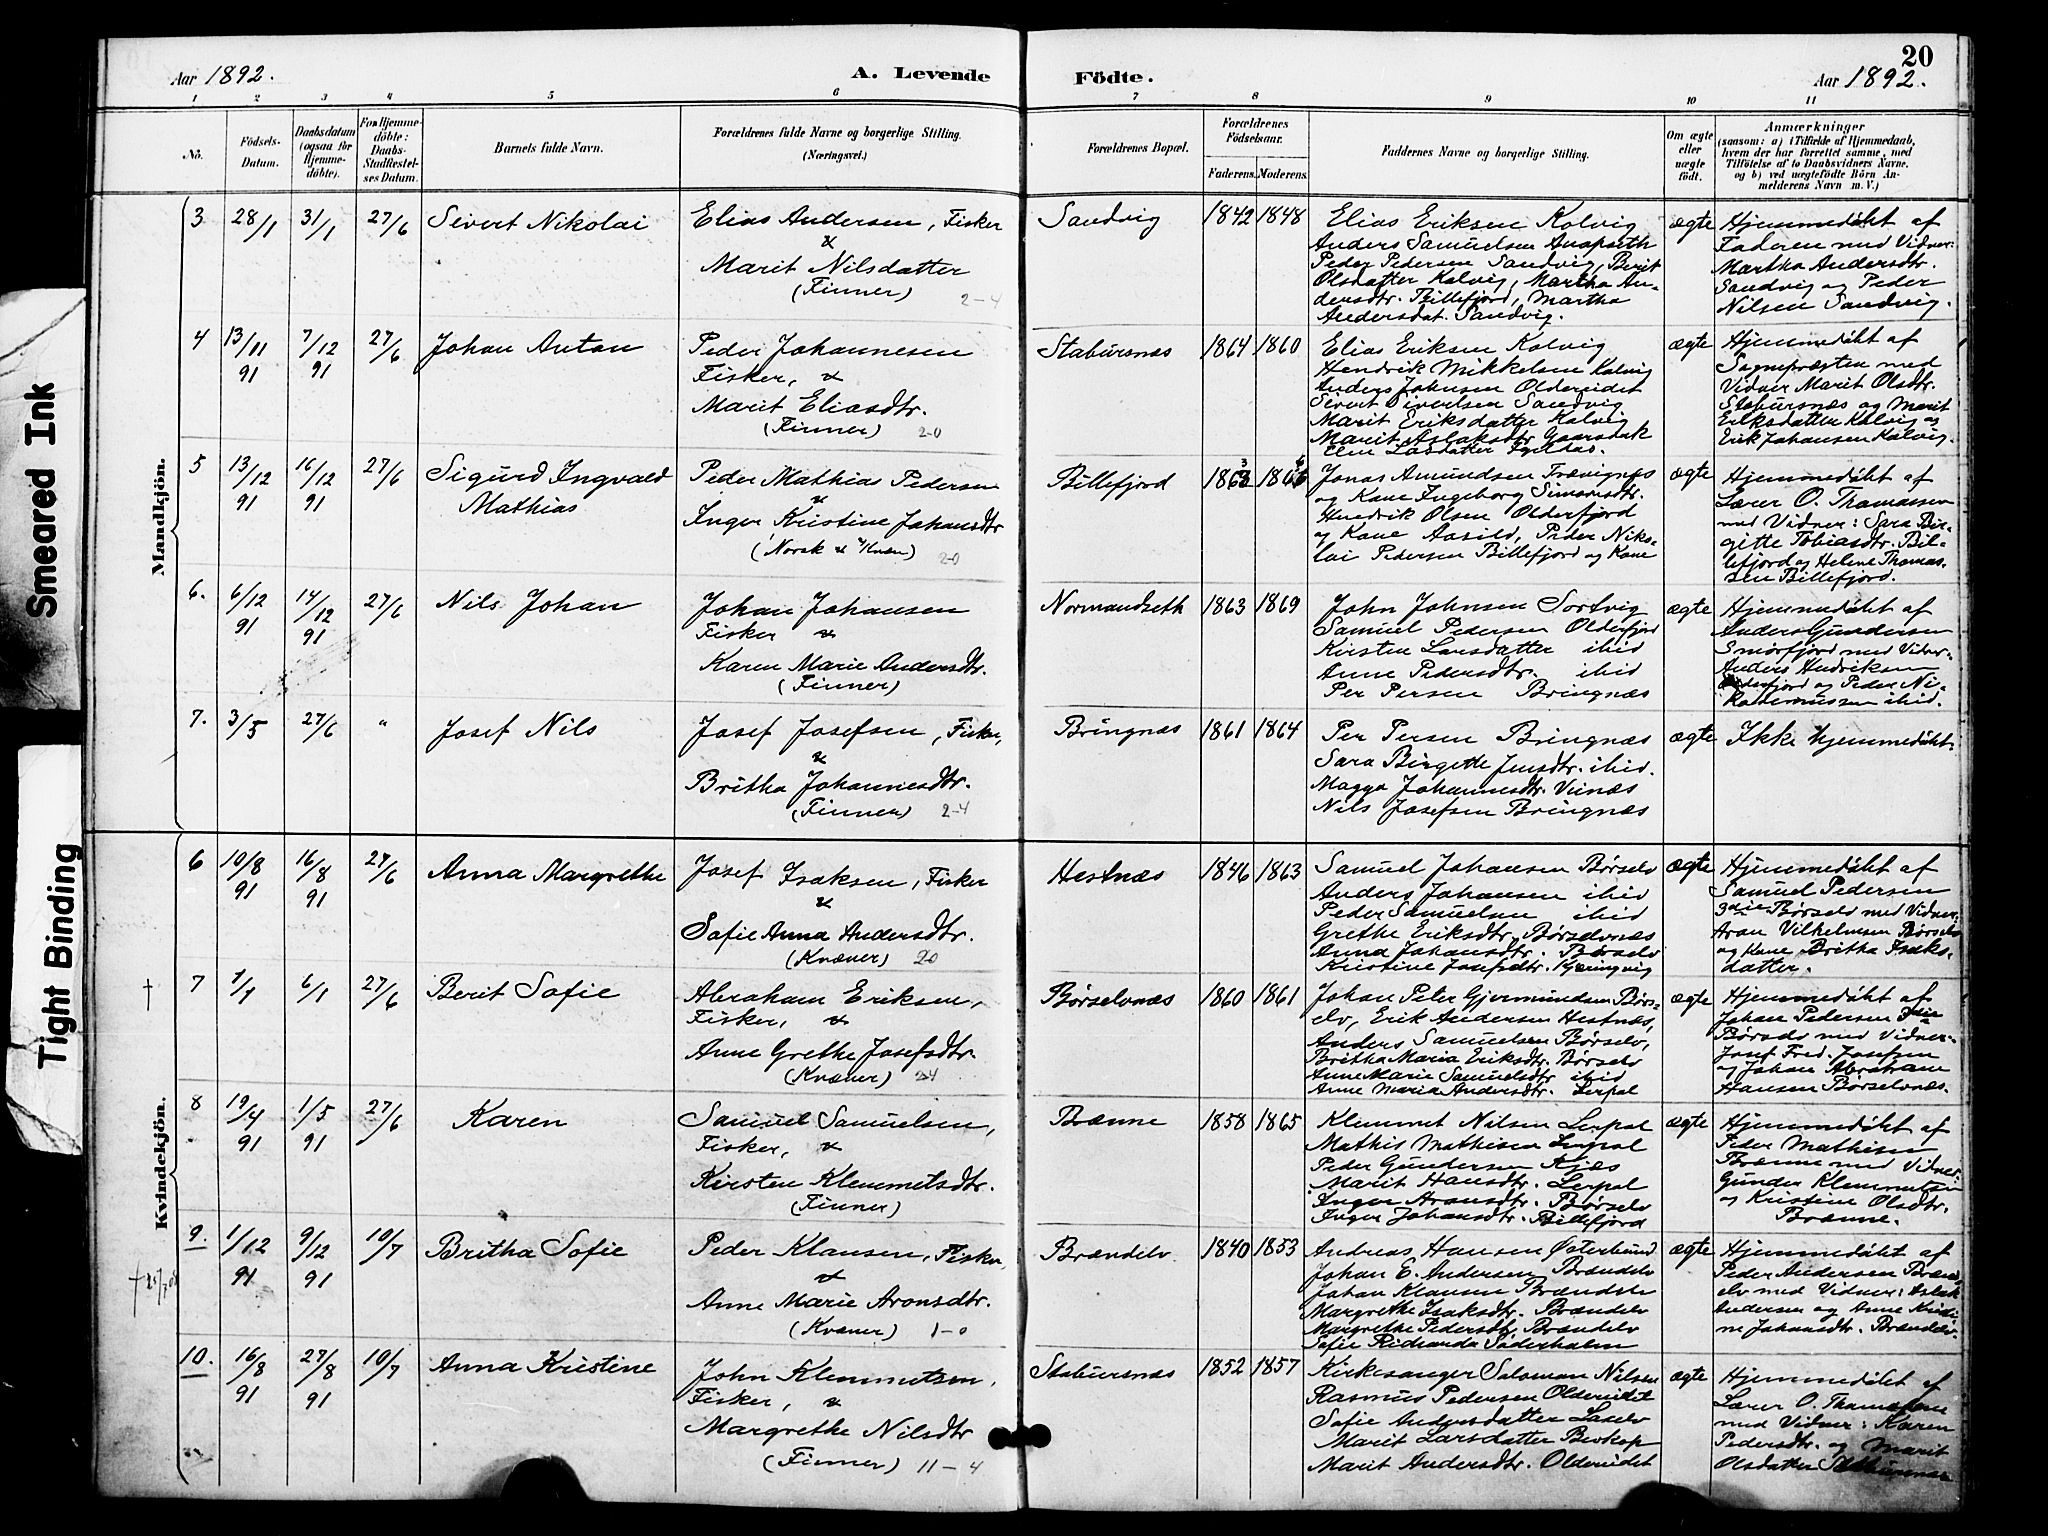 20
Aar 1892.
A. Levende Födte.
Aar 1892.
1 2 3 4 5 6 7 8 9 10 11
No.
Födsels-Datum.
Daabsdatum (ogsaa for Hjemmedöbte).
For Hjemmedöbte: Daabs-Stadfæstelses Datum.
Barnets fulde Navn.
Forældrenes fulde Navne og borgerlige Stilling.
(Næringsvei.)
Forældrenes Bopæl.
Forældrenes Födselsaar.
Faderens. Moderens.
Faddernes Navne og borgerlige Stilling.
Om ægte eller uægte födt.
Anmærkninger
(saasom: a) i Tilfælde af Hjemmedaab, hvem der har forrettet samme, med Tilföielse af to Daabsvidners Navne, og b) ved uægtefödte Börn Anmelderens Navn m. V.)
Mandkjön.
3 28/1 31/1 27/6 Sivert Nikolai
Elias Andersen, Fisker
&
Marit Nilsdatter
(Finner) 2-4
Sandvig 1842 1848
Elias Eriksen Kolvig
Anders Samuelsen
Peder Pedersen Sandvig, Berit
Olsdatter Kolvig, Martha An-
dersdtr. Billefjord, Martha
Andersdat. Sandvig.
ægte
Hjemmedøbt af
Faderen med Vidner:
Martha Andersdtr.
Sandvig og Peder
Nilsen Sandvig.
4 13/11 91 7/12 91 27/6 Johan Anton
Peder Johannesen
Fisker, &
Marit Eliasdtr.
(Finner) 2-0
Stabursnæs 1864 1860
Elias Eriksen Kolvig
Hendrik Mikkelsen Kolvig
Anders Johnsen Oldereidet
Sivert Sivertsen Sandvig
Marit Eriksdatter Kolvig
Marit Aslaksdtr
Elen Lasdatter
ægte
Hjemmedøbt af
Sognepræsten med
Vidner Marit Olsdtr.
Stabursnæs og Marit
Eriksdatter Kolvig og
Erik Johansen Kolvig.
5 13/12 91 16/12 91 27/6 Sigurd Ingvald
Mathias
Peder Mathias Pedersen
&
Inger Kristine Johansdtr
(Norsk & Kvæn) 2-0
Billefjord
Jonas Amundsen
og Kone Ingeborg Simonsdtr.
Hendrik Olsen Olderfjord
og Kone Aasild, Peder Niko-
lai Pedersen Billefjord og Kone
ægte
Hjemmedøbt af
Lærer O. Thomassen
med Vidner: Sara Bir-
gitte Tobiasdtr. Bil-
lefjord og Helene Thomas-
sen Billefjord.
6. 6/12 91 14/12 91 27/6 Nils Johan
Johan Johansen
Fisker &
Karen Marie Andersdtr.
(Finner)
Normandseth 1863 1869
John Johnsen Sortvig
Samuel Pedersen Olderfjord
Kirsten Larsdatter ibid
Anne Pedersdtr. ibid
Per Persen Bringnæs
ægte
Hjemmedøbt af
Anders Gundersen
Smörfjord med Vidner
Anders Hendriksen
Olderfjord og Peder Ni-
kodemussen ibid.
7. 3/5 27/6 " Josef Nils
Josef Josefsen, Fisker,
&
Britha Johannesdtr.
(Finner) 2-4
Bringnæs 1861 1864
Per Persen Bringnæs
Sara Birgette Jensdtr. ibid.
Magga Johannesdtr. Veinæs
Nils Josefsen Bringnæs
ægte Ikke hjemmedøbt
Kvindekjön.
6 10/8 91 16/8 91 27/6 Anna Margrethe
Josef Isaksen, Fisker
&
Sofie Anna Andersdtr.
(Kvæner) 20
Hestnæs 1846 1863
Samuel Johansen Børselv
Anders Johansen ibid
Peder Samuelsen ibid
Grethe Eriksdtr. Børselvnæs
Anna Johansdtr. Børselv
Kristine Josefsdtr. Kjæringvig
ægte
Hjemmedøbt af
Samuel Pedersen
3die Børselv med Vidner:
Aron Vilhelmsen Børselv
og Kone Britha Isaks-
datter.
†
7 1/1 6/1 27/6 Berit Sofie
Abraham Eriksen,
Fisker, &
Anne Grethe Josefsdtr.
(Kvæner) 2-4
Børselvnæs 1860 1861
Johan Peter Gjermundsen Børs-
elv, Erik Andersen Hestnæs,
Anders Samuelsen Børselv,
Britha Maria Eriksdtr. Børselv
Anne Marie Samuelsdtr ibid
Anne Maria Andersdtr. Lerpol
ægte
Hjemmedøbt af
Johan Pedersen
Børselv med Vidner:
Josef Fred. Josefsen
og Johan Abraham
Hansen Børselvnæs.
8 19/4 91 1/5 91 27/6 Karen
Samuel Samuelsen,
Fisker, &
Kirsten Klemmetsdtr.
(Finner)
Brænne 1858 1865
Klemmet Nilsen Lerpol
Mathis Mathisen Lerpol
Peder Gundersen Kjæs
Marit Hansdtr. Lerpol
Inger Aronsdtr. Børselv
Inger Johansdtr. Billefjord
ægte
Hjemmedøbt af
Peder Mathisen
Brænne med Vidner
Gunder Klemmetsen
og Kristine Olsdtr.
Brænne.
†
9. 1/12 91 9/12 91 10/7 Britha Sofie
Peder Klausen, Fisker,
&
Anne Marie Aronsdtr.
(Kvæner) 1-0
Brændelv 1840 1853
Andreas Hansen Østerbund
Johan E. Andersen Brændelv
Johan Klausen Brændelv
Margrethe Isaksdtr. Brændelv
Margrethe Pedersdtr. Brændelv
Sofie Rickarda Söderholm
ægte
Hjemmedøbt af
Peder Andersen Brænd-
elv med Vidner: Aslak
Andersen og Anne Kristi-
ne Johansdtr. Brændelv.
10. 16/8 91 27/8 91 10/7 Anna Kristine
John Klemmetsen,
Fisker, &
Margrethe Nilsdtr
(Finner) 11-4
Stabursnæs 1852 1857
Kirkesanger Salomon Nilsen
Rasmus Pedersen Oldereidet
Sofie Andersdatter Laselv
Marit Larsdatter Bevkop
Marit Andersdtr. Oldereidet
ægte
Hjemmedøbt af
Lærer O. Thomassen
med Vidner: Karen
Pedersdtr. og Marit
Olsdatter Stabursnæs
Smeared Ink
Tight Binding